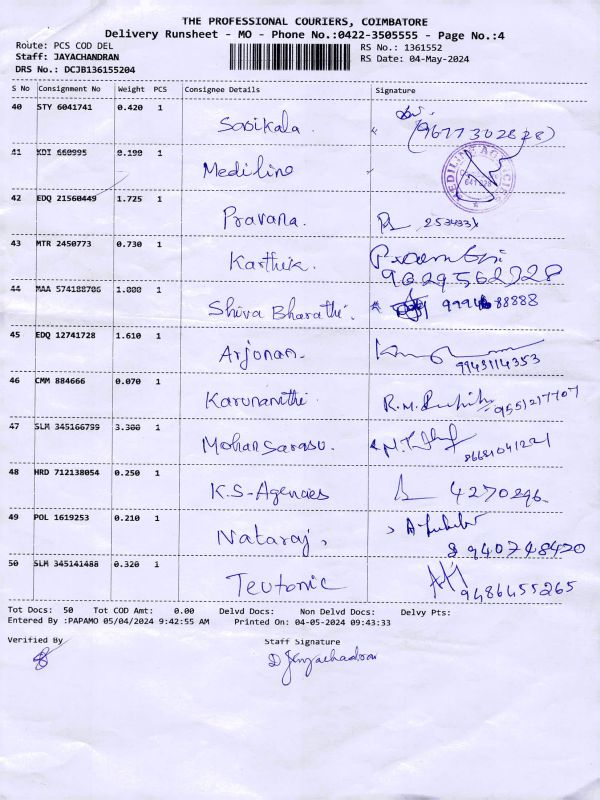 THE PROFESSIONAL COURIERS, COIMBATORE
Delivery Runsheet - MO - Phone No.:0422-3505555 - Page No.:4
Route: PCS COD DEL
RS No.: 1361552
Staff: JAYACHANDRAN
RS Date: 04-May-2024
DRS No.: DCJB136155204
S No Consignment No Weight PCS Consignee Details Signature
40 STY 6041741 0.420 1
Sasikala.
41 KDI 660995 0.190 1
Mediline
MEDILINE AGENCIES
42 EDQ 21560449 1.725 1
Pravana.
43 MTR 2450773 0.730 1
Karthik.
9029562728
44 MAA 574188706 1.000 1
Shiva Bharathi.
45 EDQ 12741728 1.610 1
Arjunan.
9943114353
46 CMM 884666 0.070 1
Karunanithi
R.M.
9551217707
47 SLM 345166799 3.300 1
Mohansarasu.
48 HRD 712138054 0.250 1
K.S-Agencies
4270296
49 POL 1619253 0.210 1
Nataraj,
9940748420
50 SLM 345141488 0.320 1
Teutonic
9486455265
Tot Docs: 50 Tot COD Amt: 0.00 Delvd Docs: Non Delvd Docs: Delvy Pts:
Entered By :PAPAMO 05/04/2024 9:42:55 AM Printed On: 04-05-2024 09:43:33
Verified By
Staff Signature